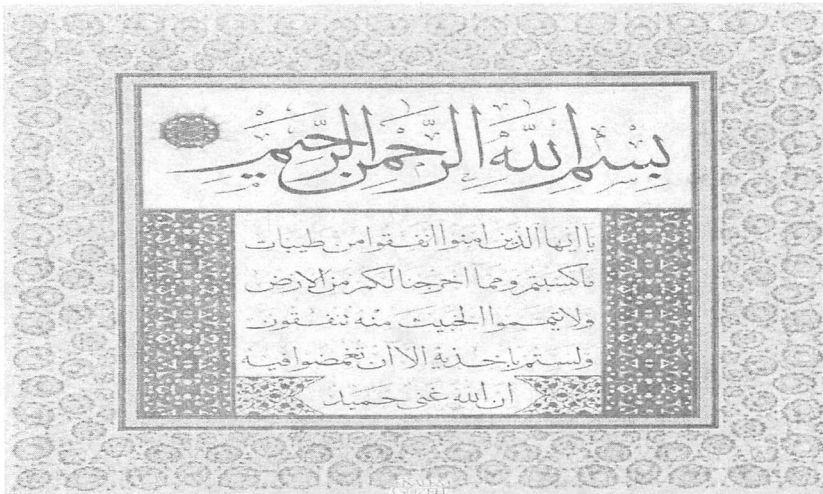 بِسْمِ اللَّهِ الرَّحْمَنِ الرَّحِيمِ
يا ايها الذين امنوا انفقوا من طيبات
ماكسبتم ومما اخرجنا لكم من الارض
ولا تيمموا الخبيث منه تنفقون
ولستم باخذيه الا ان تغمضوا فيه
ان الله غنى حميد